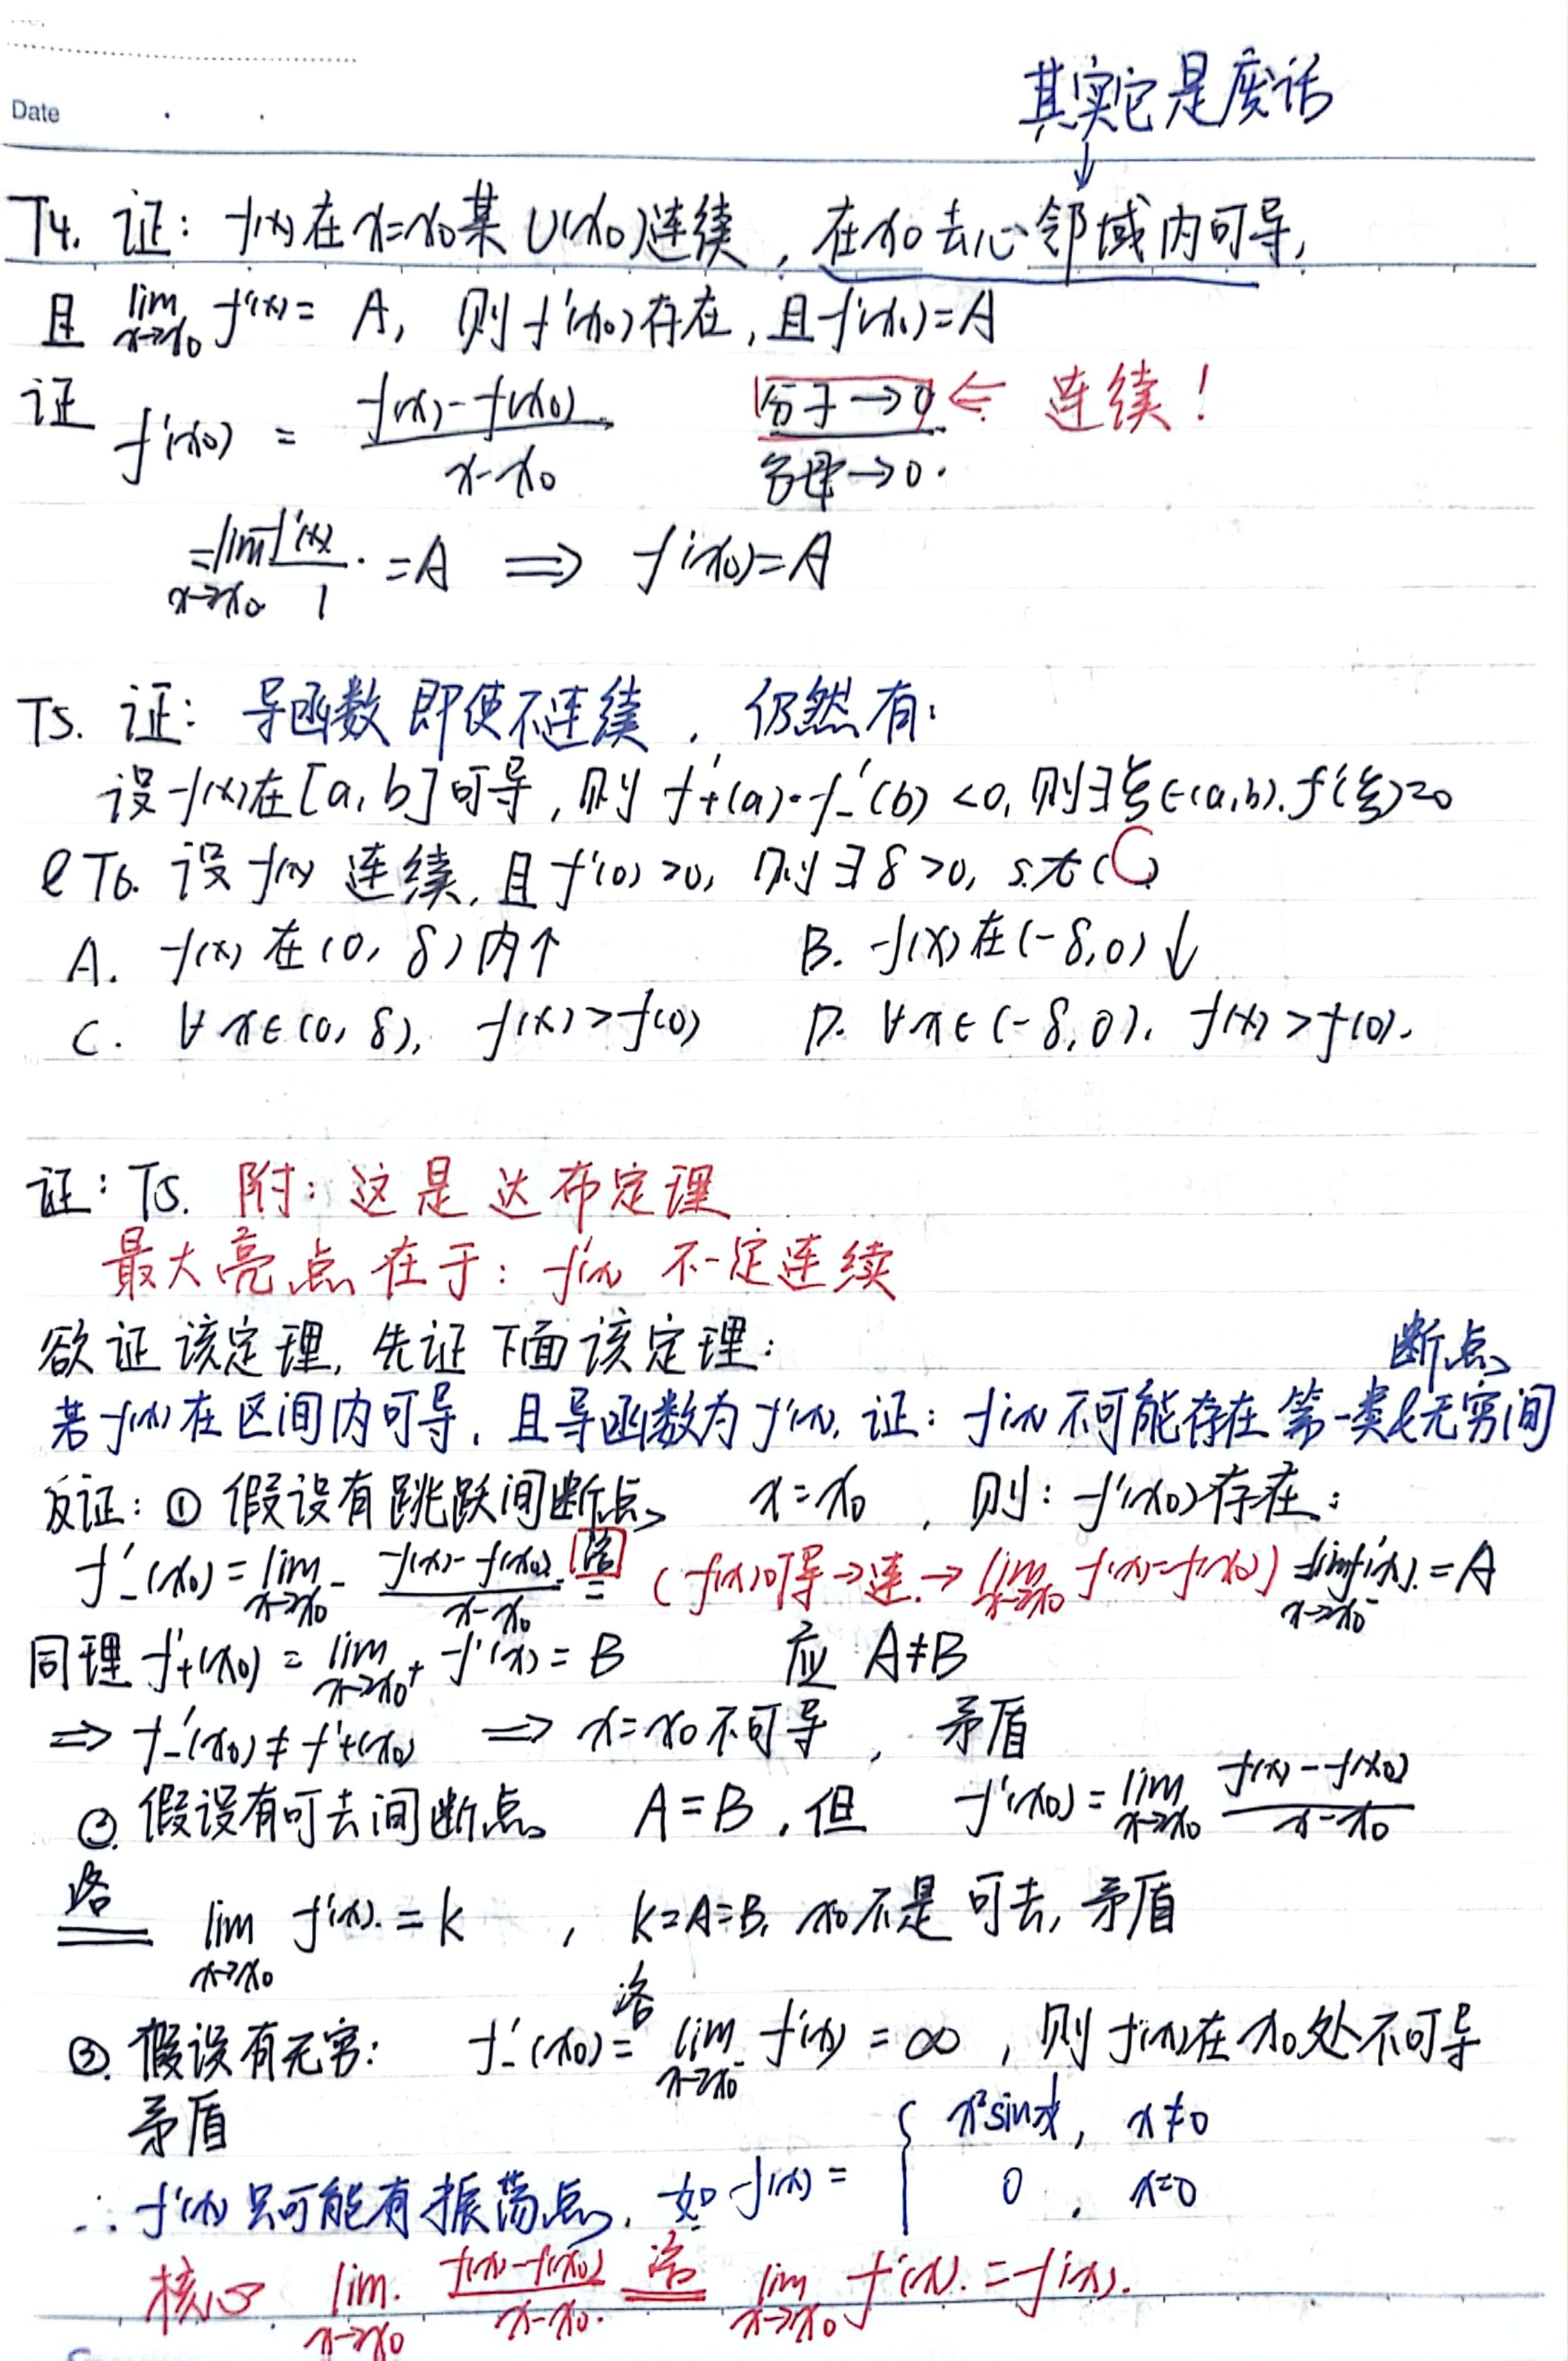 Date
其实它是废话
↓
T4. 证: f(x)在x=x₀某U(x₀)连续, 在x₀去心邻域内可导,
且 lim_{x→x₀} f'(x) = A, 则f'(x₀)存在, 且f'(x₀)=A
证 f'(x₀) = (f(x)-f(x₀))/(x-x₀) 分子→0 ⇐ 连续!
分母→0.
= lim_{x→x₀} f'(x)/1 = A ⟹ f'(x₀)=A
T5. 证: 导函数即使不连续, 仍然有:
设f(x)在[a,b]可导, 则f'₊(a)·f'₋(b)<0, 则∃ξ∈(a,b). f'(ξ)=0
T6. 设f(x)连续, 且f'(0)>0, 则∃δ>0, s.t.(C)
A. f(x)在(0, δ)内↑ B. f(x)在(-δ,0)↓
C. ∀x∈(0, δ), f(x)>f(0) D. ∀x∈(-δ,0), f(x)>f(0).
证: T5. 附: 这是达布定理
最大亮点在于: f'(x) 不一定连续
欲证该定理, 先证下面该定理:
若f(x)在区间内可导, 且导函数为f'(x), 证: f'(x)不可能存在第一类&无穷间断点
反证: ① 假设有跳跃间断点 x=x₀, 则: f'(x₀)存在:
f'₋(x₀) = lim_{x→x₀⁻} (f(x)-f(x₀))/(x-x₀) 洛= (f(x)可导→连→lim_{x→x₀} f(x)=f(x₀)) = lim_{x→x₀⁻} f'(x) = A
同理 f'₊(x₀) = lim_{x→x₀⁺} f'(x) = B 应 A≠B
⟹ f'₋(x₀)≠f'₊(x₀) ⟹ x=x₀不可导, 矛盾
② 假设有可去间断点 A=B, 但 f'(x₀) = lim_{x→x₀} (f(x)-f(x₀))/(x-x₀)
洛= lim_{x→x₀} f'(x) = k, k=A=B, x₀不是可去, 矛盾
③ 假设有无穷: f'₋(x₀) 洛= lim_{x→x₀⁻} f'(x) = ∞, 则f(x)在x₀处不可导
矛盾
∴ f'(x)只可能有振荡点, 如 f(x) = { x²sin1/x, x≠0
0, x=0
核心 lim_{x→x₀} (f(x)-f(x₀))/(x-x₀) 洛= lim_{x→x₀} f'(x) = f'(x).